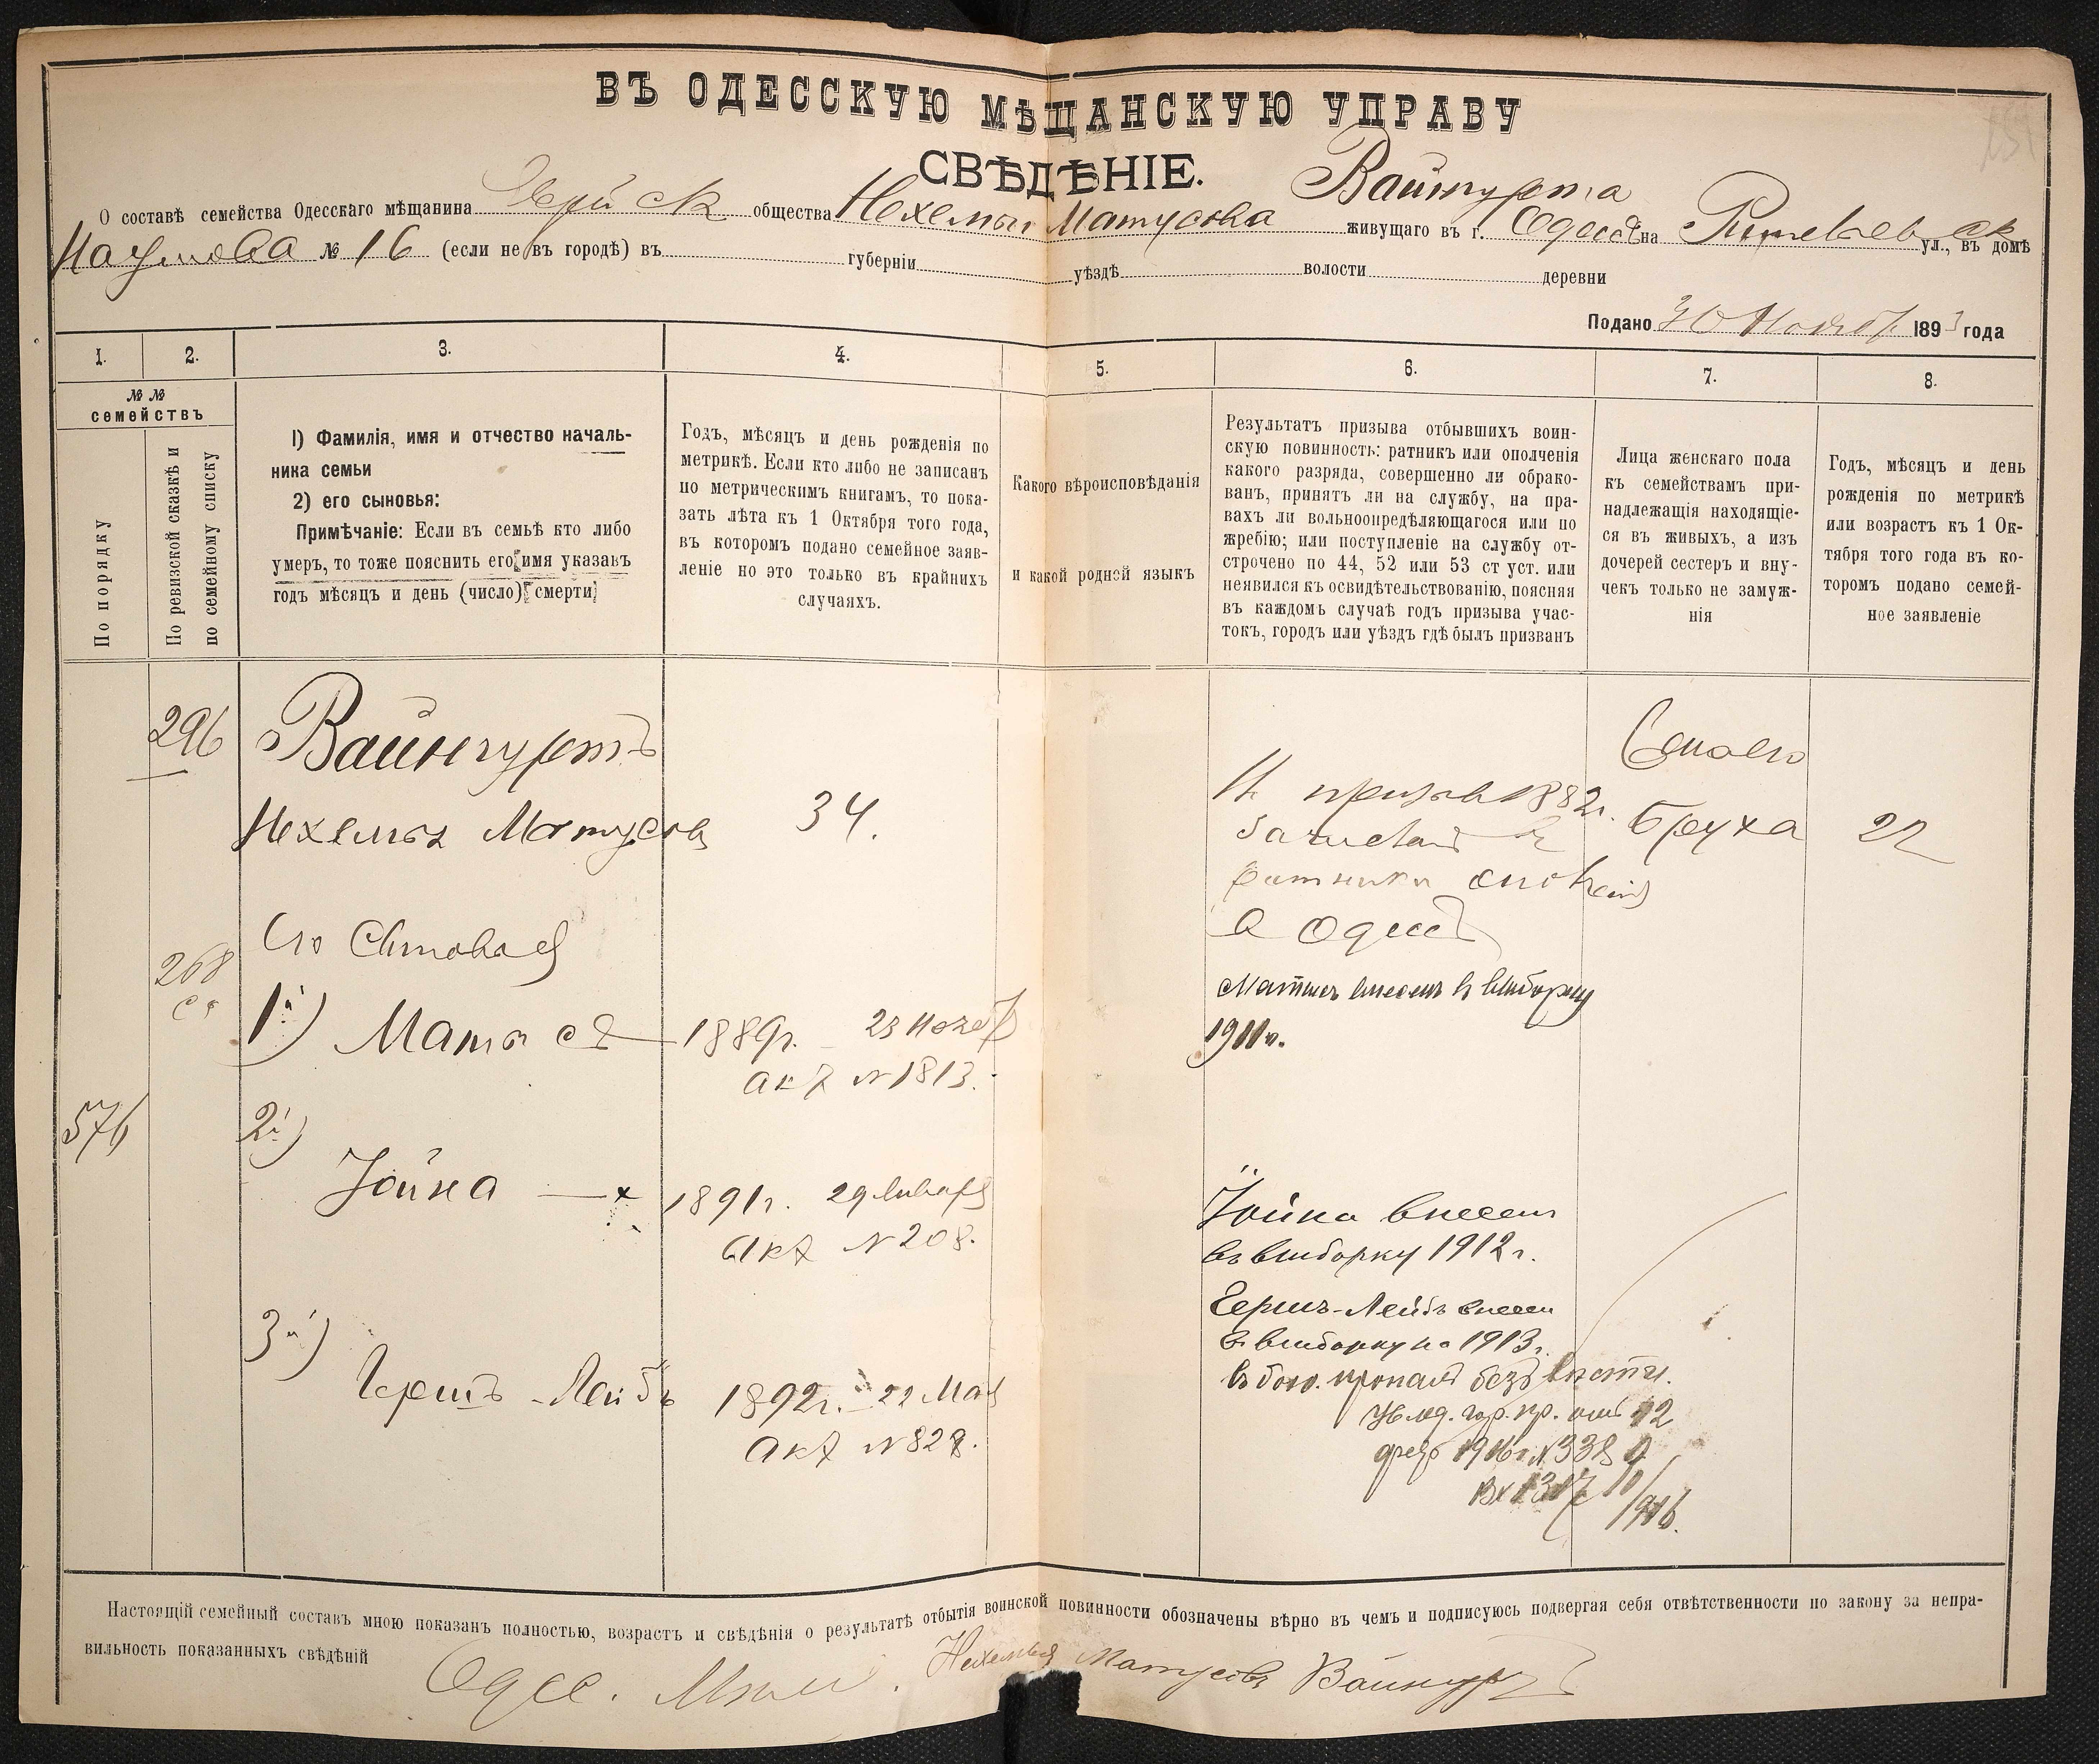 ВЪ ОДЕССКУЮ МѢЩАНСКУЮ УПРАВУ
СВѢДѢНІЕ.
Вайнгурта
О составѣ семейства Одесскаго мѣщанина Еврейск общества Нехемьи Матусова живущаго въ г. Одессѣ на Ришельевск ул., въ домѣ
Наумова № 16 (если не въ городѣ) въ губерніи уѣздѣ волости деревни
Подано 30 Ноября 1893 года
1. 2. 3. 4. 5. 6. 7. 8.
№№
семействъ
По порядку
По ревизской сказкѣ и
по семейному списку
1) Фамилія, имя и отчество началь-
ника семьи
2) его сыновья:
Примѣчаніе: Если въ семьѣ кто либо
умеръ, то тоже пояснить его имя указавъ
годъ мѣсяцъ и день (число) смерти
Годъ, мѣсяцъ и день рожденія по
метрикѣ. Если кто либо не записанъ
по метрическимъ книгамъ, то пока-
зать лѣта къ 1 Октября того года,
въ которомъ подано семейное заяв-
леніе но это только въ крайнихъ
случаяхъ.
Какого вѣроисповѣданія
и какой родной языкъ
Результатъ призыва отбывшихъ воин-
скую повинность: ратникъ или ополченія
какого разряда, совершенно ли обрако-
ванъ, принятъ ли на службу, на пра-
вахъ ли вольноопредѣляющагося или по
жребію; или поступленіе на службу от-
строчено по 44, 52 или 53 ст уст. или
неявился къ освидѣтельствованію, поясняя
въ каждомъ случаѣ годъ призыва учас-
токъ, городъ или уѣздъ гдѣ былъ призванъ
Лица женскаго пола
къ семействамъ при-
надлежащія находящіе-
ся въ живыхъ, а изъ
дочерей сестеръ и вну-
чекъ только не замуж-
нія
Годъ, мѣсяцъ и день
рожденія по метрикѣ
или возрастъ къ 1 Ок-
тября того года въ ко-
торомъ подано семей-
ное заявленіе
296 Вайнгуртъ
Нехемья Матусовъ 34.
призыв 1882г.
Зачислен в
ратники ополчения
в Одессѣ
Бруха 22
Его Сыновья
268
1й) Матысъ 1889г. 23 Нояб
акт № 1813.
Матысъ внесенъ в выборку
1911г.
576
2й)
Іойна 1891г. 29 Января
Акт № 208.
Іойна внесен
въ выборку 1912г.
3й)
Гершъ-Лейбъ 1892г. 22 Мая
акт № 828.
Гершъ-Лейбъ внесен
в выборку на 1913г.
въ бою пропалъ безъ вѣсти.
Увед. гор. пр. от 12
февр 1916г. № 3389
Вх 1317
10/1916.
Настоящій семейный составъ мною показанъ полностью, возрастъ и свѣдѣнія о результатѣ отбытія воинской повинности обозначены вѣрно въ чемъ и подписуюсь подвергая себя отвѣтственности по закону за непра-
вильность показанныхъ свѣдѣній
Одес. Мѣщ. Нехемья Матусовъ Вайнгуртъ